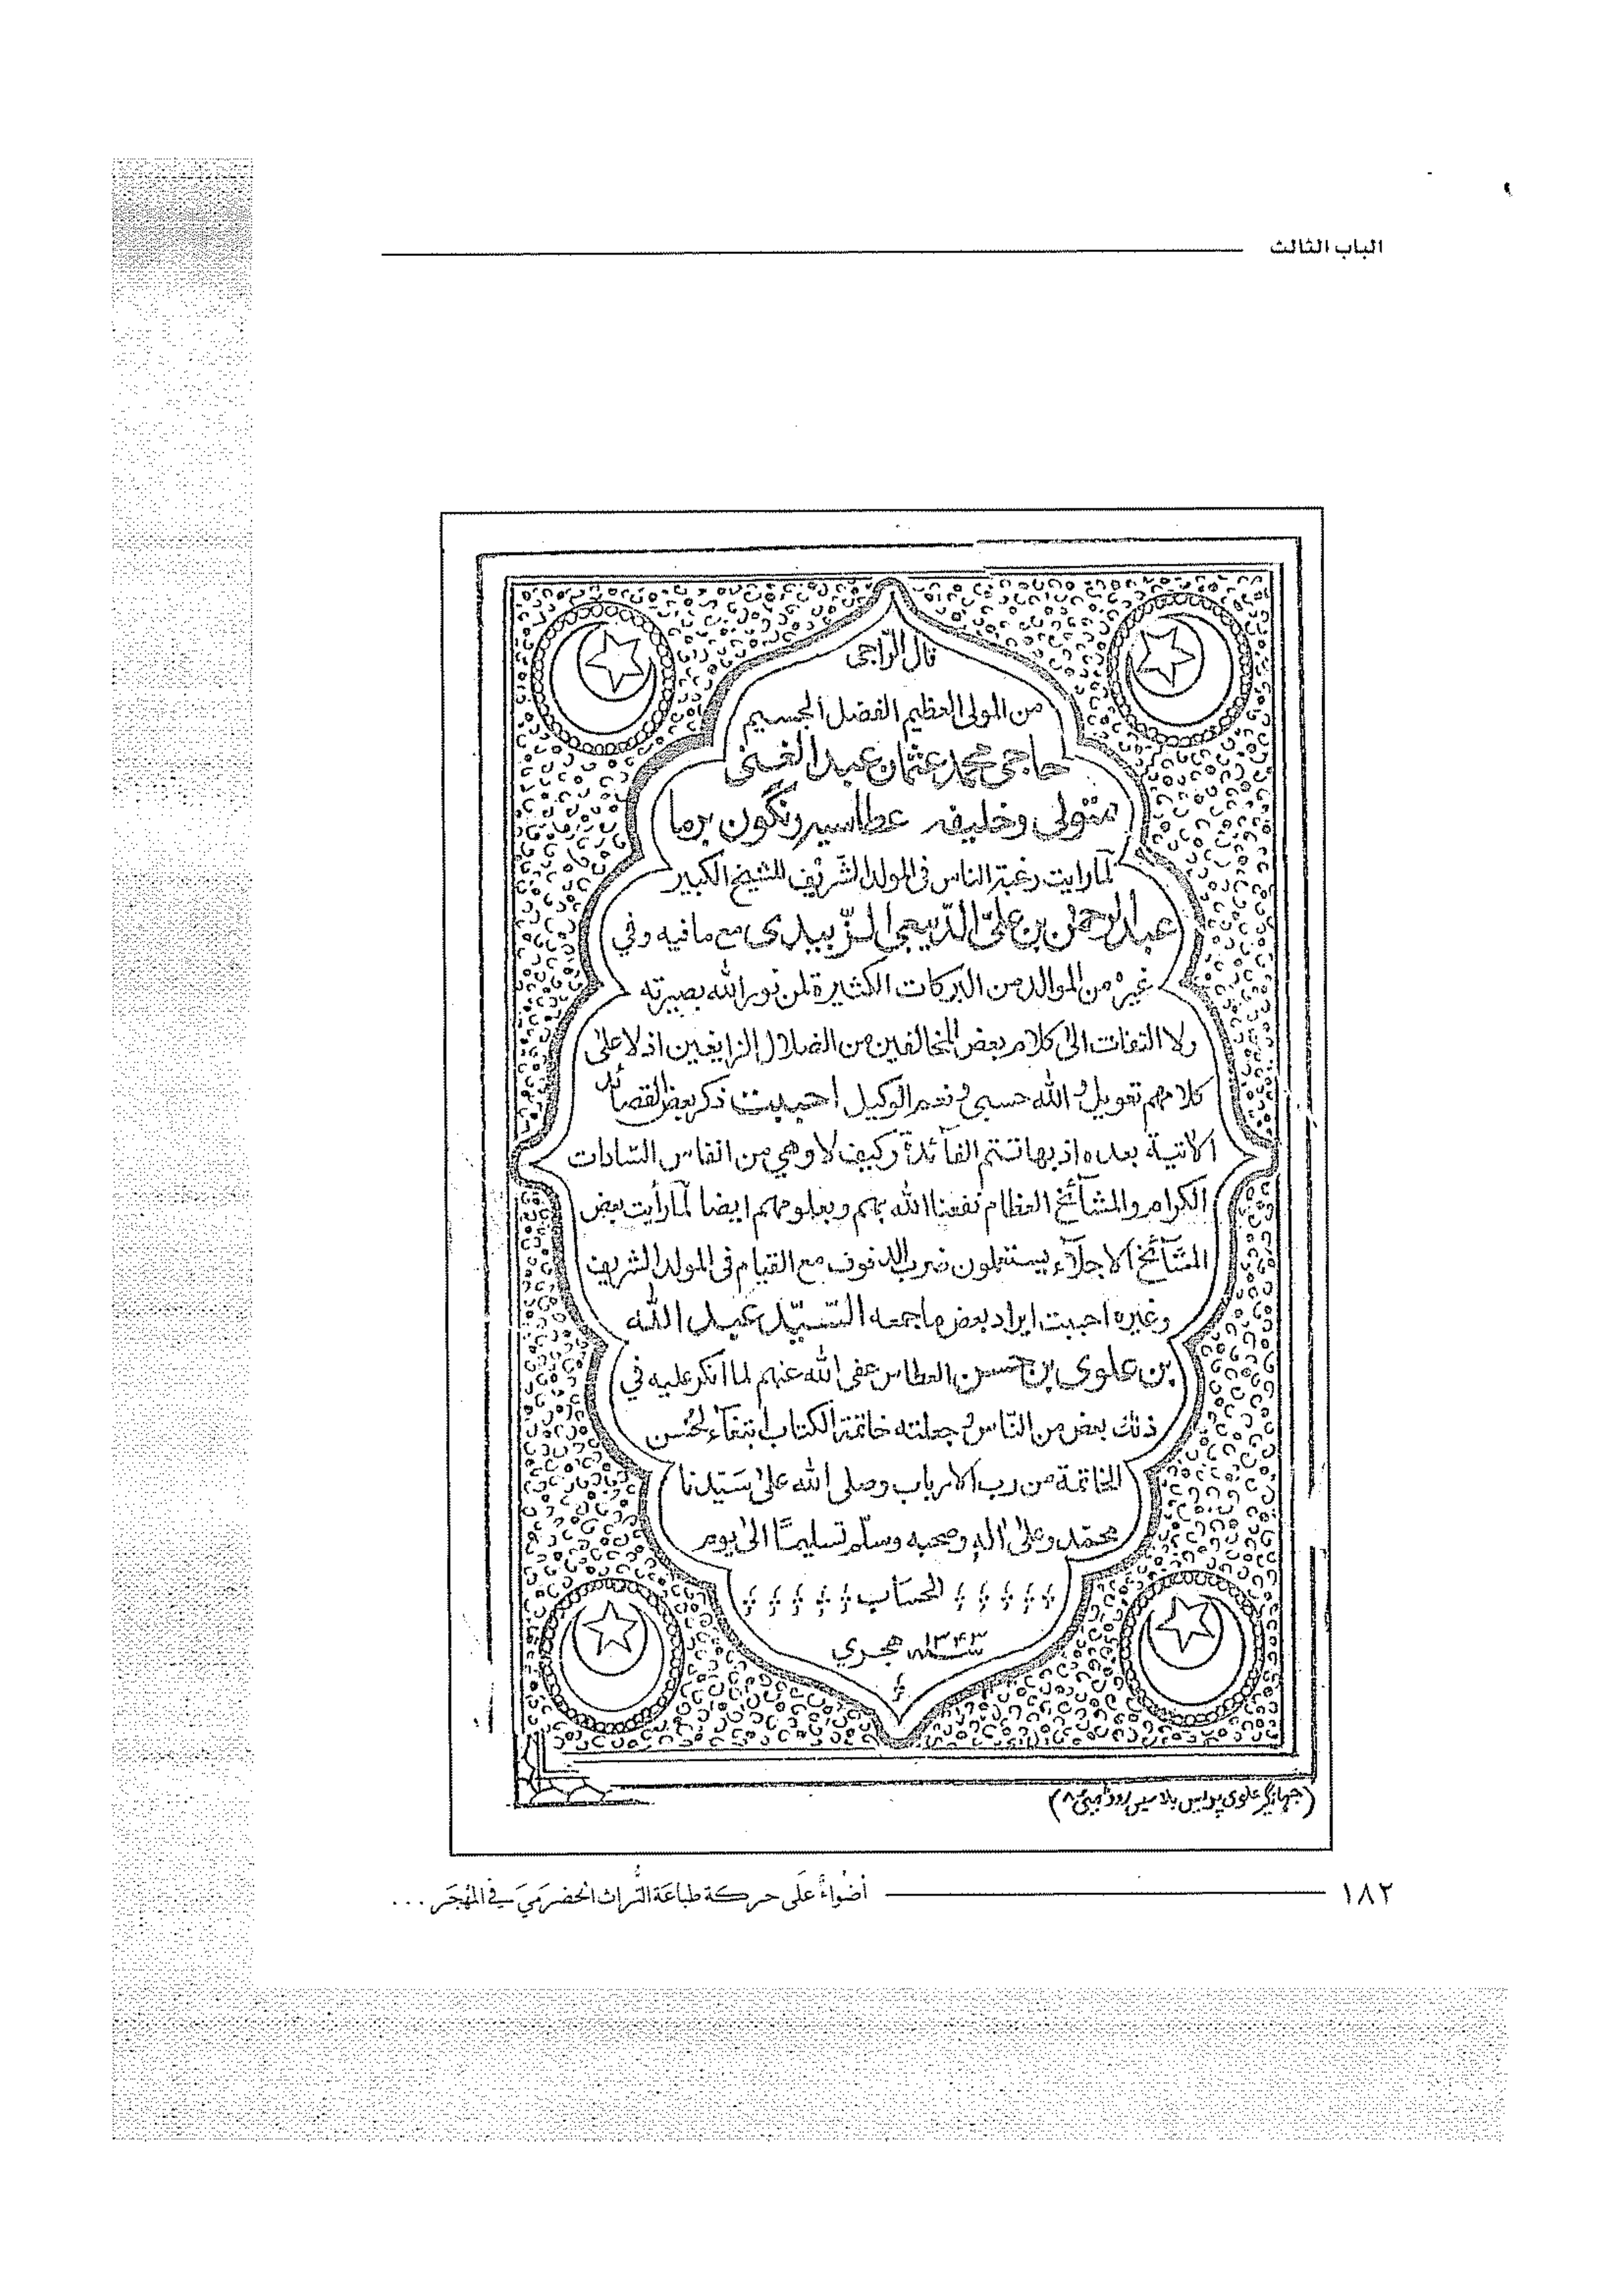 الباب الثالث
قال الرّاجى
من المولى العظيم الفضل الجسيم
حاجى محمد عثمان عبد الغنى
متولى وخليفه عطاسيه رنگون برما
لما رايت رغبة الناس فى المولد الشّريف للشيخ الكبير
عبد الرحمٰن بن علىّ الدّيبعى الزّبيدى مع مافيه وفي
غيره من الموالد من البركات الكثيرة لمن نور الله بصيرته
ولا التفات الى كلام بعض المخالفين من الضلال الزايغين اذ لا على
كلامهم تعويل و الله حسبى و نعم الوكيل احببت ذكر بعض القصائد
الاتية بعده اذ بها تتم الفائدة وكيف لا وهي من انفاس السّادات
الكرام والمشائخ العظام نفعنا الله بهم وبعلومهم ايضا لمّا رأيت بعض
المشائخ الاجلّاء يستعملون ضرب الدفوف مع القيام فى المولد الشريف
وغيره احببت ايراد بعض ما جمعه السّيّد عبد الله
بن علوى بن حسن العطاس عفى الله عنهم لما انكر عليه في
ذلك بعض من النّاس و جعلته خاتمة الكتاب ابتغاء لحُسن
الخاتمة من رب الارباب وصلى الله على سَيّدنا
محمّد وعلى اله وصحبه وسلّم تسليمًا الى يوم
الحسَاب
سنة ١٣٤٣ هجري
(جهانگير علوى پرليس بلاسيس روڈ بمبئى ٨)
١٨٢
أضْواءٌ عَلَى حركة طباعَة التُّراث الحضرَميّ في المَهْجَر ...